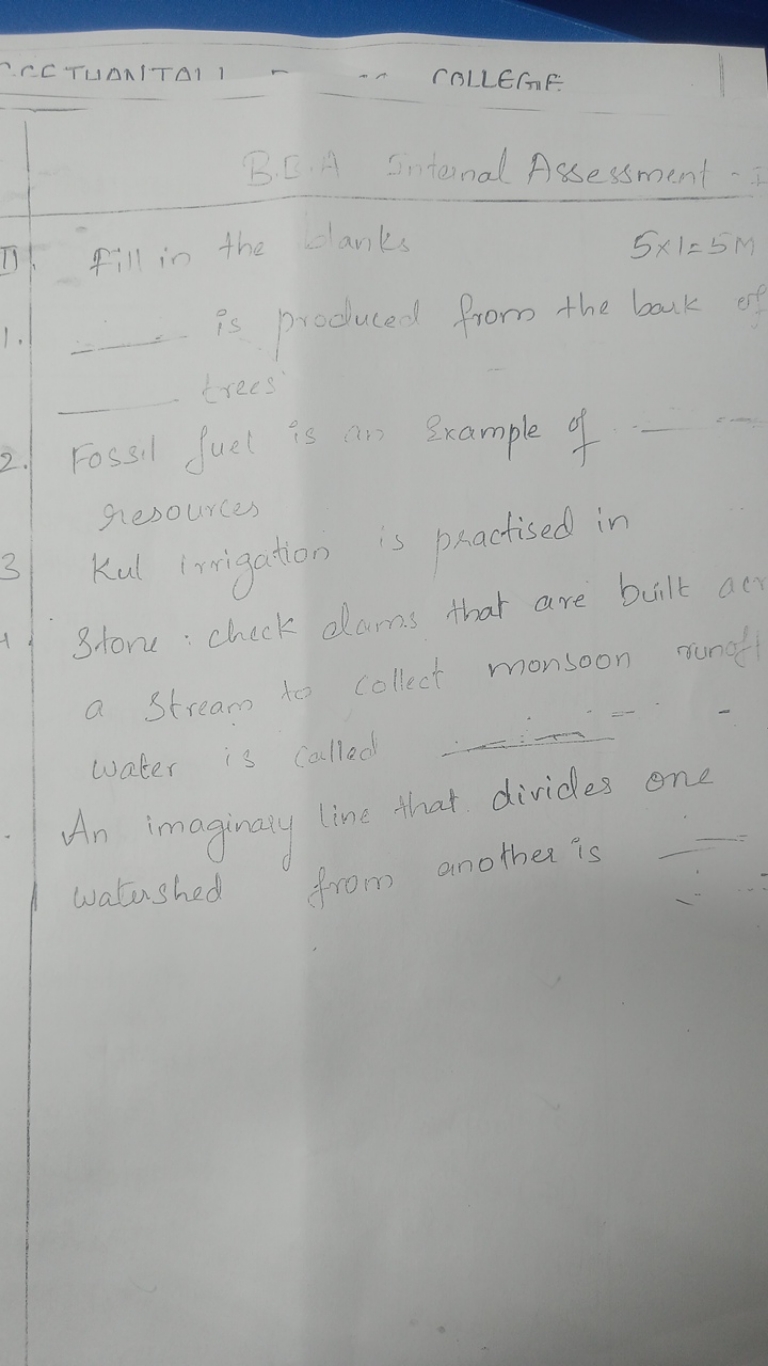 COLLEGE
B.B.A Internal Assessment - I
II). Fill in the blanks 5x1=5M
1. ______ is produced from the bark of
______ trees
2. Fossil fuel is an Example of ______
resources
3 Kul irrigation is practised in
Stone check dams that are built acr
a stream to collect monsoon runoff
water is called ______
An imaginary line that divides one
watershed from another is ______